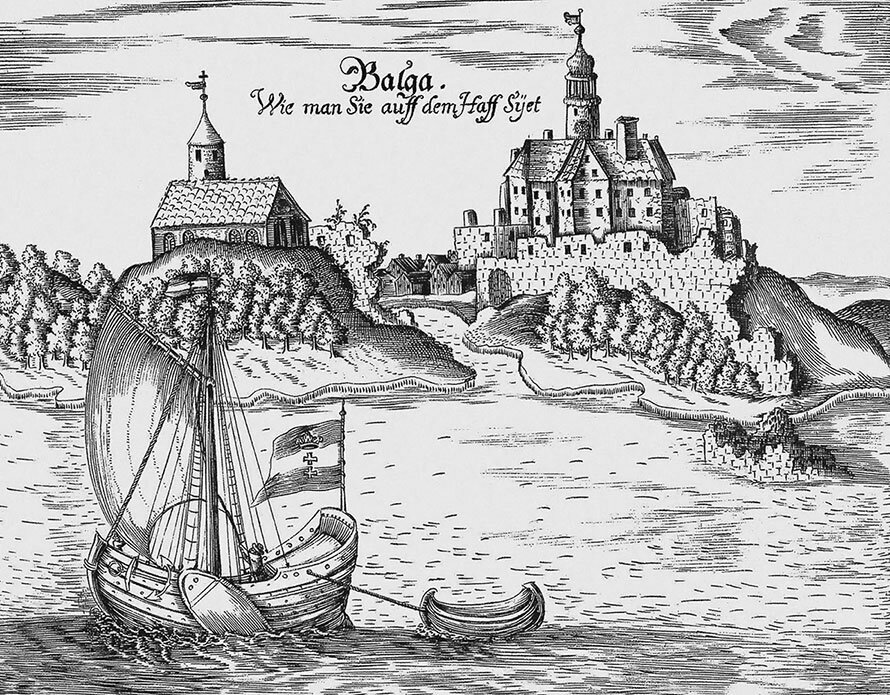 Balga.
Wie man Sie auff dem Haff Sÿet